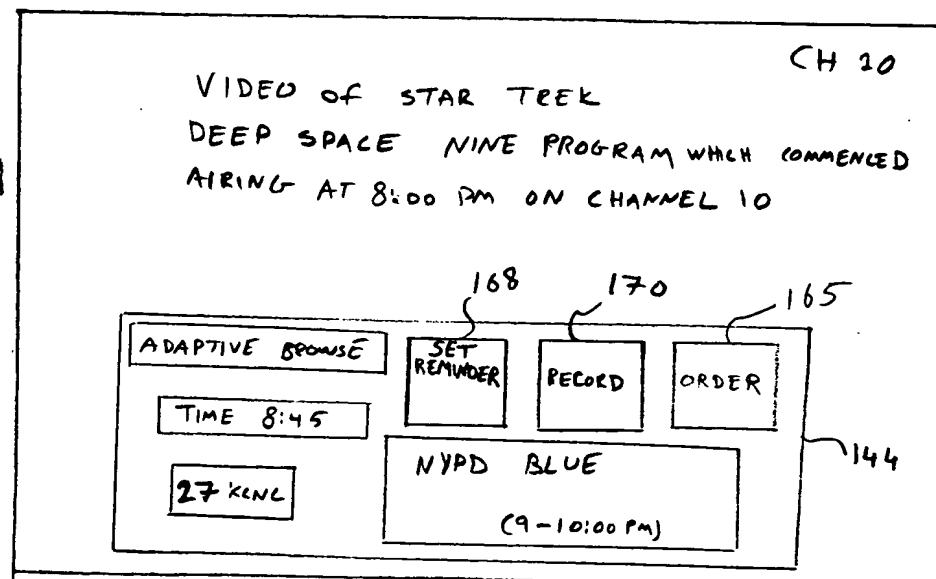 CH 10
VIDEO of STAR TREK
DEEP SPACE NINE PROGRAM WHCH COMMENCED
AIRING AT 8:00 PM ON CHANNEL 10
168 170 165
ADAPTIVE BROWSE
SET
REMINDER
RECORD
ORDER
TIME 8:45
144
NYPD BLUE
27 KCNC
(9-10:00 PM)